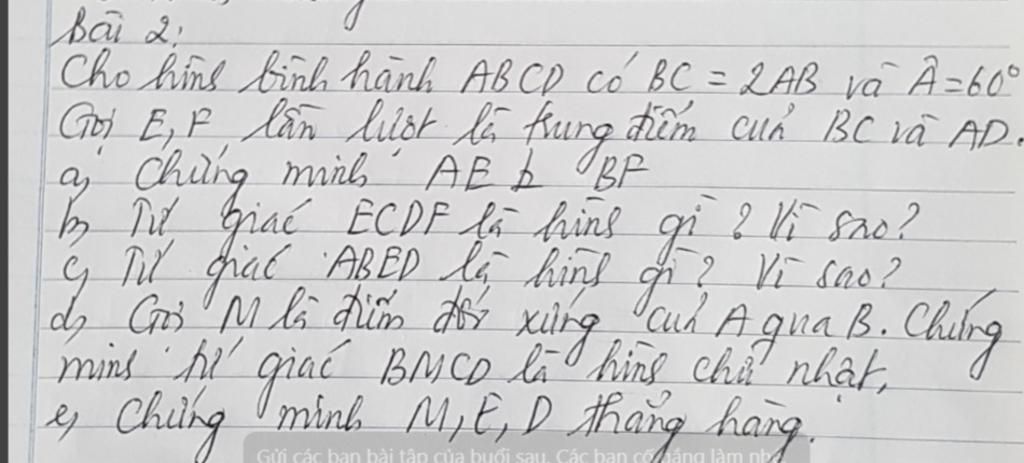 Bài 2:
Cho hình bình hành ABCD có BC = 2AB và Â = 60°
Gọi E, F lần lượt là trung điểm của BC và AD.
a, Chứng minh AE ⊥ BF
b, Tứ giác ECDF là hình gì? Vì sao?
c, Tứ giác ABED là hình gì? Vì sao?
d, Gọi M là điểm đối xứng của A qua B. Chứng
minh tứ giác BMCD là hình chữ nhật,
e, Chứng minh M, E, D thẳng hàng.
Gửi các bạn bài tập của buổi sau. Các bạn cố gắng làm